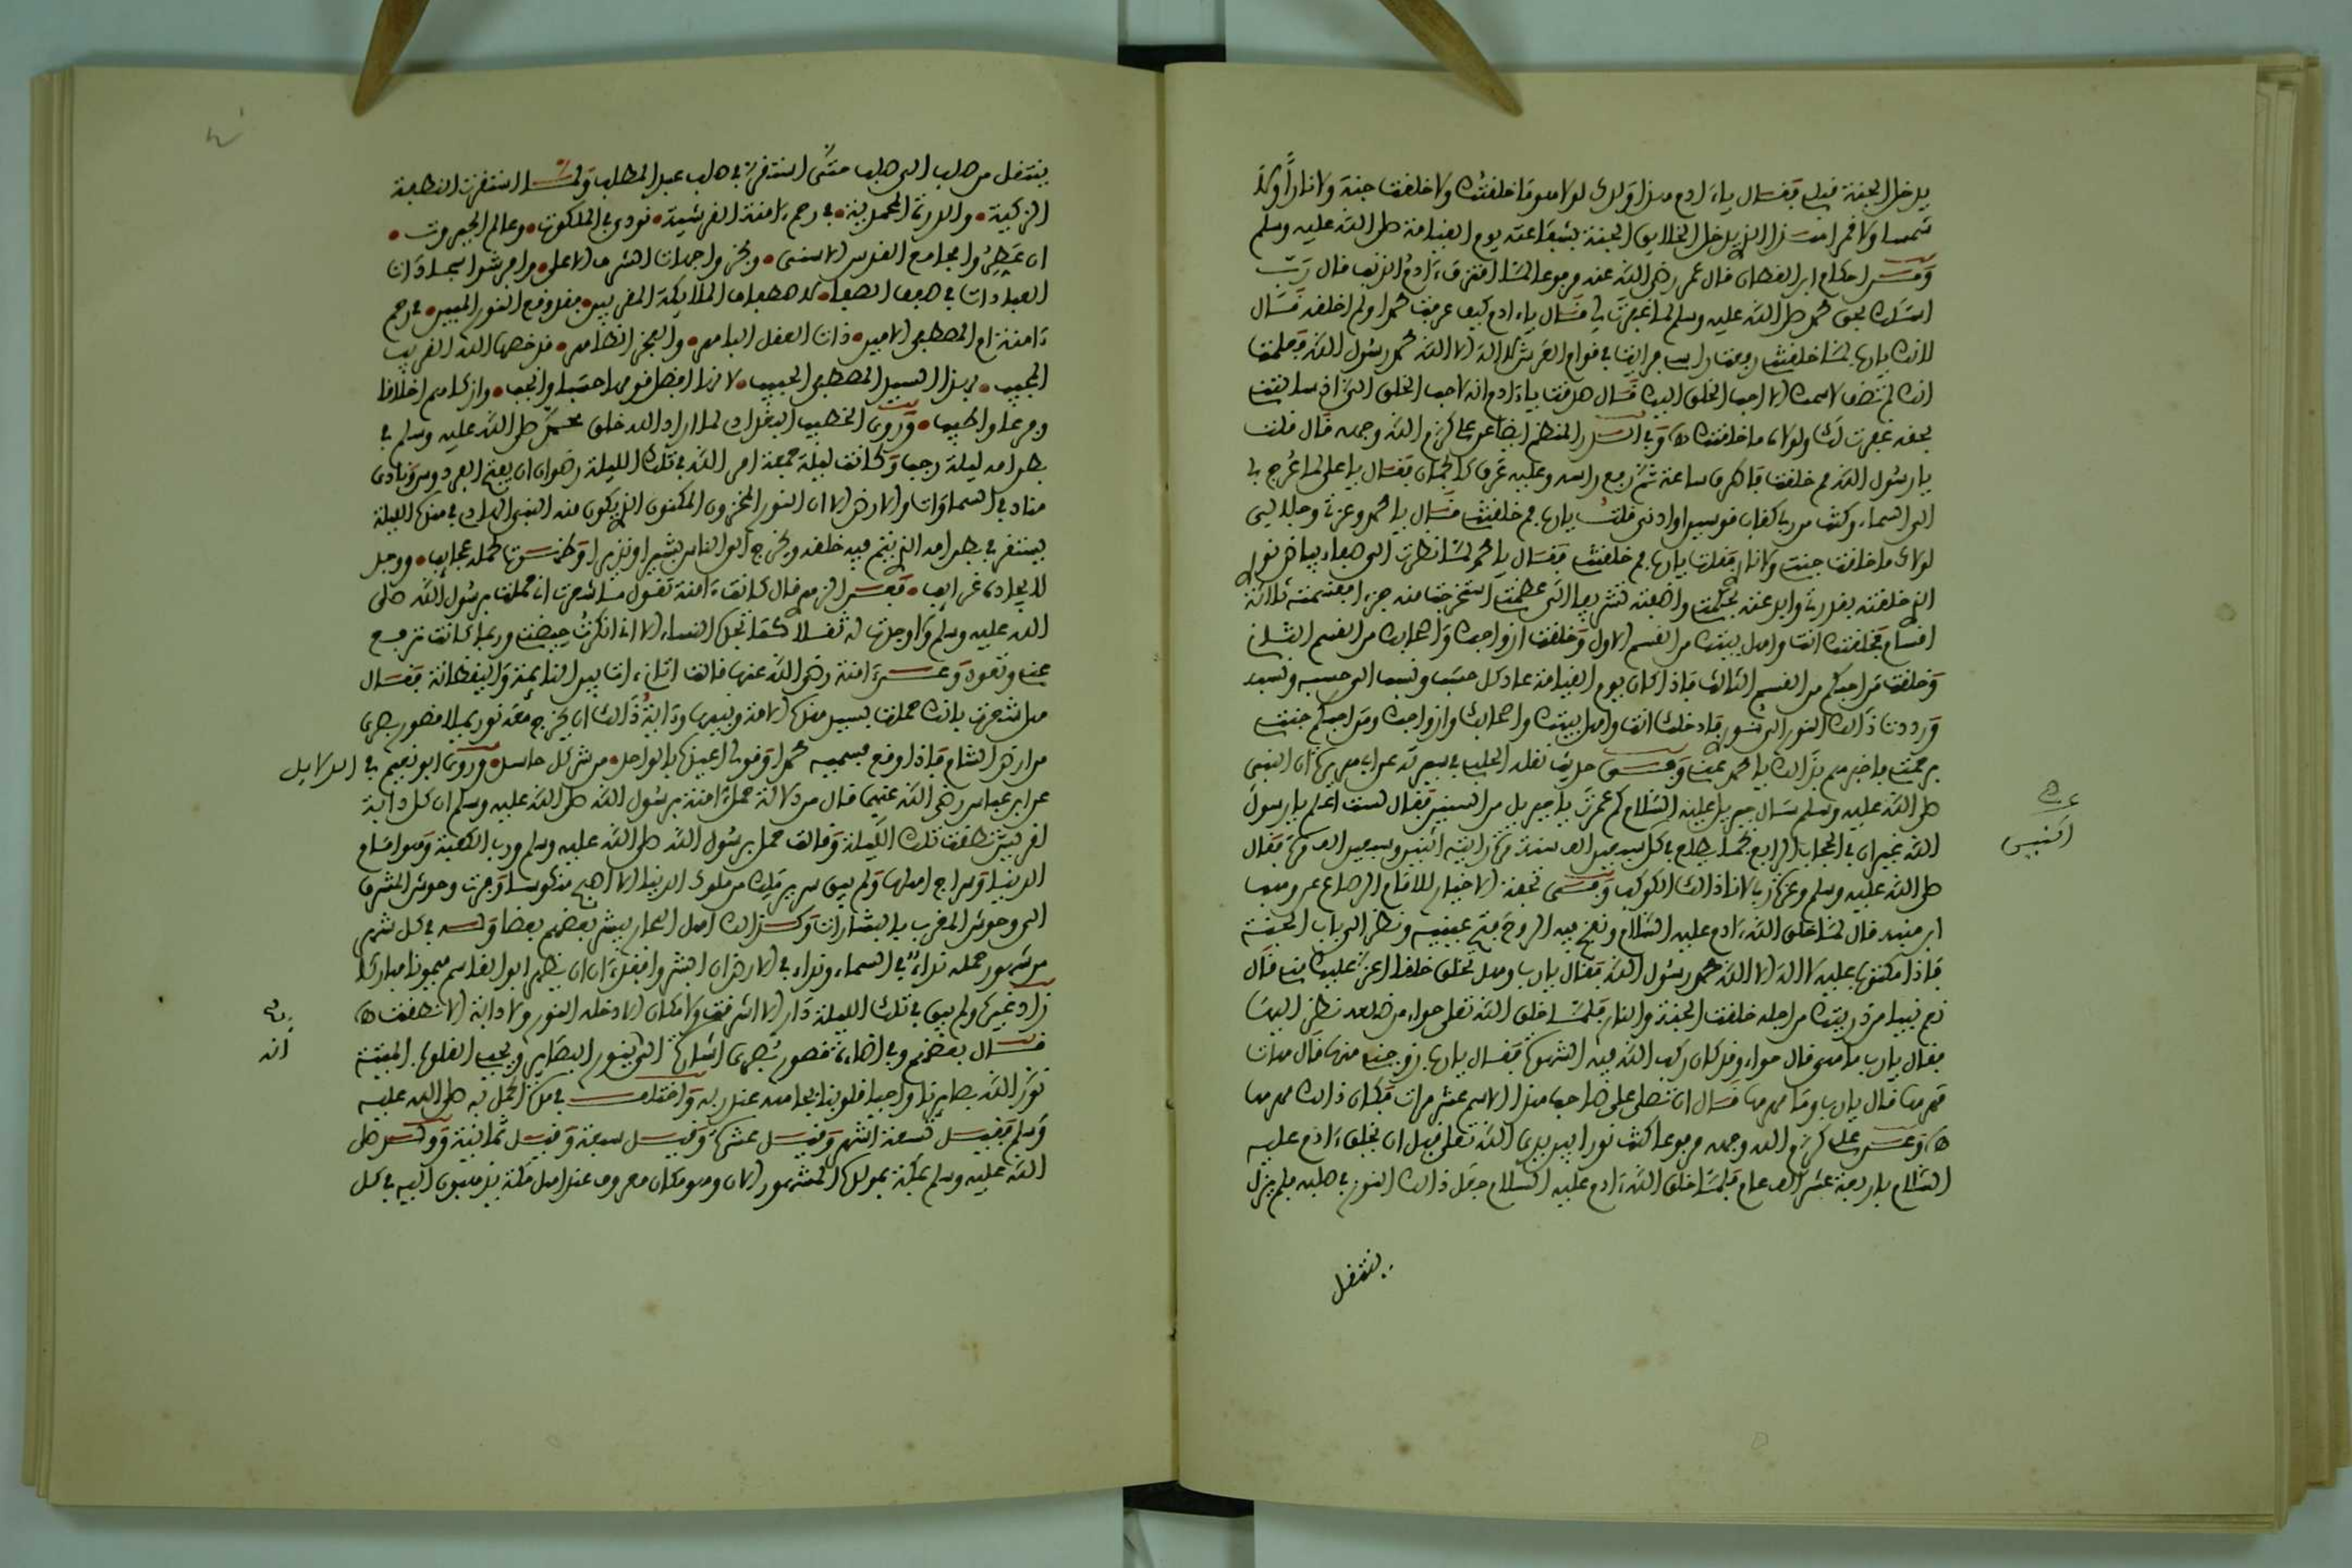 يدخل الجنة قبلي فقال يا ءادم هذا ولدك لولا هو ما خلقتك ولا خلقت جنة ولا نارا ولا
شمسا ولا قمرا يدخل الخلايق الجنة بشفاعته يوم القيامة صلى الله عليه وسلم
احكام ابن القطان قال عمر رضي الله عنه مرفوعا لما اقترف ءادم الذنب قال رب
اسئلك بحق محمد صلى الله عليه وسلم لما غفرت لي فقال يا ءادم كيف عرفت محمدا ولم اخلقه فقال
لانك يا رب لما خلقتني رفعت راسي فرايت في قوائم العرش لا اله الا الله محمد رسول الله فعلمت
انك لم تضف لاسمك الا احب الخلق اليك فقال صدقت يا ءادم انه لاحب الخلق الي اذ سالتني
بحقه غفرت لك ولولاه ما خلقتك وفي الدر المنظم ايضا عن علي كرم الله وجهه قال قلت
يا رسول الله مم خلقت فاطرق ساعة ثم رفع راسه وعليه عرق كالجمان فقال يا علي لما عرج بي
الى السماء وكنت من ربي كقاب قوسين او ادنى قلت يا رب مم خلقتني فقال يا محمد وعزتي وجلالي
لولاك ما خلقت جنتي ولا ناري فقلت يا رب مم خلقتني فقال يا محمد لما نظرت الى صفاء بياض نور
الذي خلقته بقدرتي وابدعته بحكمتي واضفته تشريفا الى عظمتي استخرجت منه جزءا فقسمته ثلاثة
اقسام فخلقتك انت واهل بيتك من القسم الاول وخلقت ازواجك واصحابك من القسم الثاني
وخلقت من احبكم من القسم الثالث فاذا كان يوم القيامة عاد كل حسب ونسب الى حسبه ونسبه
ورددت ذالك النور الى نوري فادخلتك انت واهل بيتك واصحابك وازواجك ومن احبكم جنتي
برحمتي فاخبرهم بذالك يا محمد عني حديث نقله الحلبي في سيرته عن ابي هريرة ان النبي
صلى الله عليه وسلم سال جبريل عليه السلام كم عمرت يا جبريل من السنين فقال لست اعلم يا رسول
الله غير ان في الحجاب الرابع نجما يطلع في كل سبعين الف سنة مرة رايته اثنين وسبعين الف مرة فقال
صلى الله عليه وسلم وعزة ربي لانا ذالك الكوكب تحفة الاخيار للامام الرصاع عن وهب
ابن منبه قال لما خلق الله ءادم عليه السلام ونفخ فيه الروح فتح عينيه ونظر الى باب الجنة
فاذا مكتوب عليه لا اله الا الله محمد رسول الله فقال يا رب وهل تخلق خلقا اعز عليك مني قال
نعم نبيا من ذريتك من اجله خلقت الجنة والنار فلما خلق الله تعلى حواء من ضلعه نظر اليها
فقال يا رب ما هي قال حواء وقد كان ركب الله فيه الشهوة فقال يا رب زوجني منها قال هات
مهرها قال يا رب وما مهرها قال ان تصلي على صاحب هذا الاسم عشر مرات فكان ذالك مهرها
وعن علي كرم الله وجهه مرفوعا كنت نورا بين يدي الله تعلى قبل ان يخلق ءادم عليه
السلام باربعة عشر الف عام فلما خلق الله ءادم عليه السلام جعل ذالك النور في صلبه فلم يزل
ينتقل
اثنين
ينتقل من صلب الى صلب حتى استقر في صلب عبد المطلب ولما استقرت النطفة
الزكية والدرة المحمدية في رحم ءامنة القرشية نودي في الملكوت وعالم الجبروت
ان عطروا مجامع القدس الاسنى وبخروا جهات الشرف الاعلى وافرشوا سجادات
العبادات في صفف الصفاء لاصطفاف الملائكة المقربين فقد وقع النور المبين في رحم
ءامنة ام المصطفى الامين ذات العقل الباهر والفخر الظاهر قد خصها الله القريب
المجيب بهذا السيد المصطفى الحبيب لانها افضل قومها حسبا وانجب وازكاهم اخلاقا
وفرعا واطيب وروى الخطيب البغدادي لما اراد الله خلق محمد صلى الله عليه وسلم في
بطن امه ليلة رجب وكانت ليلة جمعة امر الله في تلك الليلة رضوان ان يفتح الفردوس ونادى
مناد في السماوات والارض الا ان النور المخزون المكنون الذي يكون منه النبي الهادي في هذه الليلة
يستقر في بطن امه الذي يتم فيه خلقه ويخرج الى الناس بشيرا ونذيرا وظهرت لحمله عجايب ووجد
لايجاده غرايب فعن الزهري قال كانت ءامنة تقول ما شعرت اني حملت برسول الله صلى
الله عليه وسلم ولا وجدت له ثقلا كما تجد النساء الا اني انكرت حيضتي وربما كانت ترفع
عني وتعود وعن ءامنة رضي الله عنها قالت اتاني ءات بين النائمة واليقظانة فقال
هل شعرت بانك حملت بسيد هذه الامة ونبيها وءاية ذالك ان يخرج معه نور يملا قصور بصرى
من ارض الشام فاذا وضع فسميه محمدا وقولي اعيذه بالواحد من شر كل حاسد وروى ابو نعيم في الدلايل
عن ابن عباس رضي الله عنهما قال من دلالة حمل ءامنة برسول الله صلى الله عليه وسلم ان كل دابة
لقريش نطقت تلك الليلة وقالت حمل برسول الله صلى الله عليه وسلم ورب الكعبة وهو امام
الدنيا وسراج اهلها ولم يبق سرير ملك من ملوك الدنيا الا اصبح منكوسا وفرت وحوش المشرق
الى وحوش المغرب بالبشارات وكذالك اهل البحار يبشر بعضهم بعضا وله في كل شهر
من شهور حمله نداء في السماء ونداء في الارض ان ابشروا فقد ءان ان يظهر ابو القاسم ميمونا مباركا
زاد غيره ولم يبق في تلك الليلة دار الا اشرقت ولا مكان الا دخله النور ولا دابة الا نطقت
قال بعضهم وفي اضاءة قصور بصرى اشارة الى انه ينور البصاير ويحيي القلوب الميتة
نور الله بصايرنا واحيا قلوبنا بجاهه عند ربه واختلف في مدة الحمل به صلى الله عليه
وسلم فقيل تسعة اشهر وقيل عشرة وقيل سبعة وقيل ثمانية وولد صلى
الله عليه وسلم بمكة بمولده المشهور الان وهو مكان معروف عند اهل مكة يذهبون اليه في كل
انه